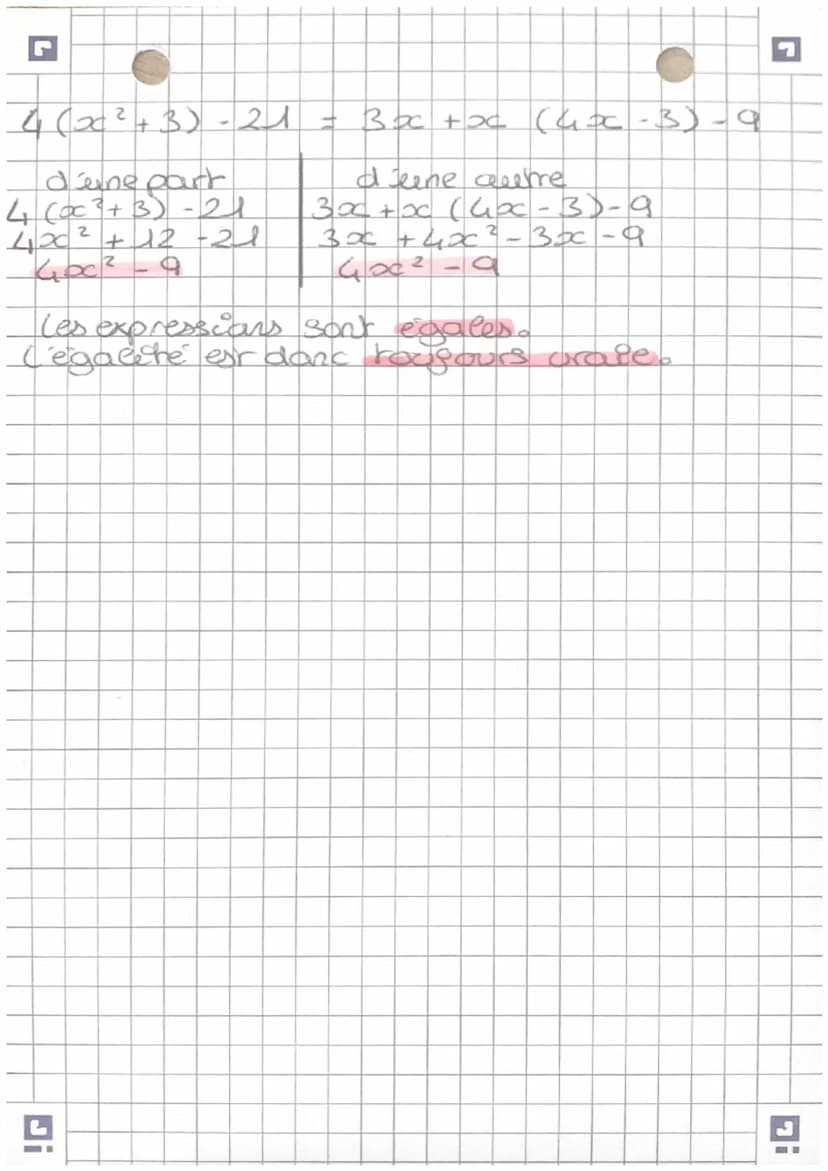 4(x²+3) - 21 = 3x + x (4x - 3) - 9
d'une part
4(x²+3) - 21
4x² + 12 - 21
4x² - 9
d'une autre
3x + x (4x - 3) - 9
3x + 4x² - 3x - 9
4x² - 9
Les expressions sont égales.
L'égalité est donc toujours vraie.